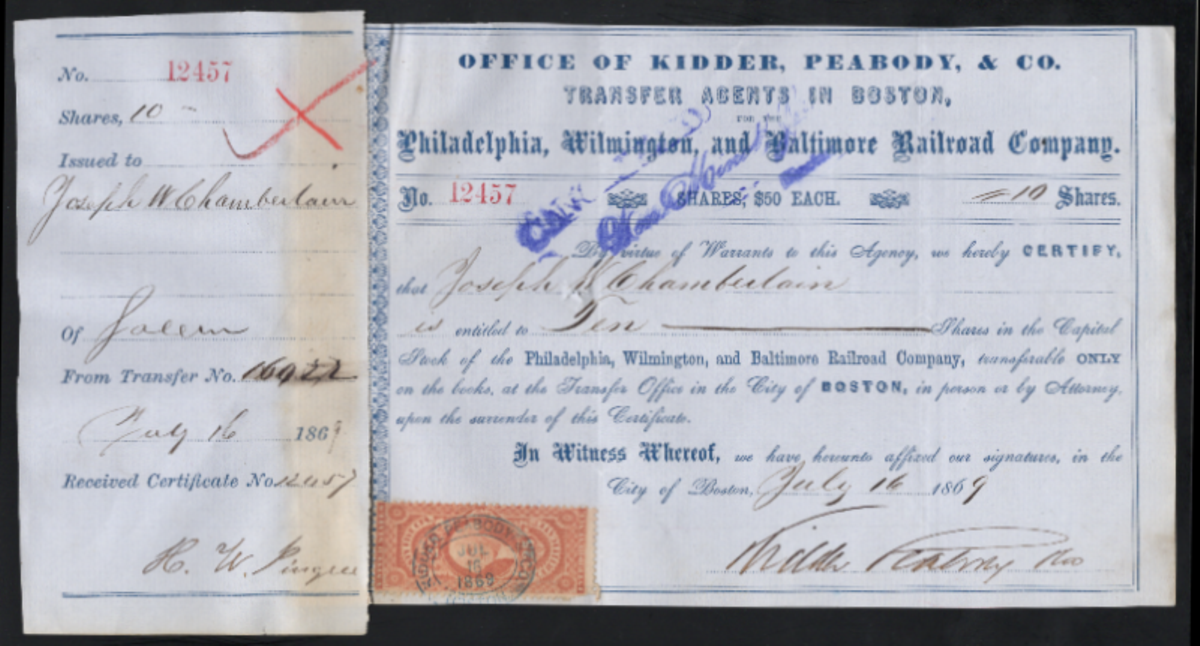 No. 12457
Shares, 10
Issued to
Joseph W Chamberlain
Of Salem
From Transfer No. 16922
July 16 1869
Received Certificate No. 12457
H. W. Pingree
OFFICE OF KIDDER, PEABODY, & CO.
TRANSFER AGENTS IN BOSTON,
FOR THE
Philadelphia, Wilmington, and Baltimore Railroad Company.
No. 12457 SHARES, $50 EACH. 10 Shares.
By virtue of Warrants to this Agency, we hereby CERTIFY,
that Joseph W Chamberlain
is entitled to Ten Shares in the Capital
Stock of the Philadelphia, Wilmington, and Baltimore Railroad Company, transferable ONLY
on the books, at the Transfer Office in the City of BOSTON, in person or by Attorney,
upon the surrender of this Certificate.
In Witness Whereof, we have hereunto affixed our signatures, in the
City of Boston, July 16 1869
Kidder Peabody & Co
JUL
16
1869
BOSTON